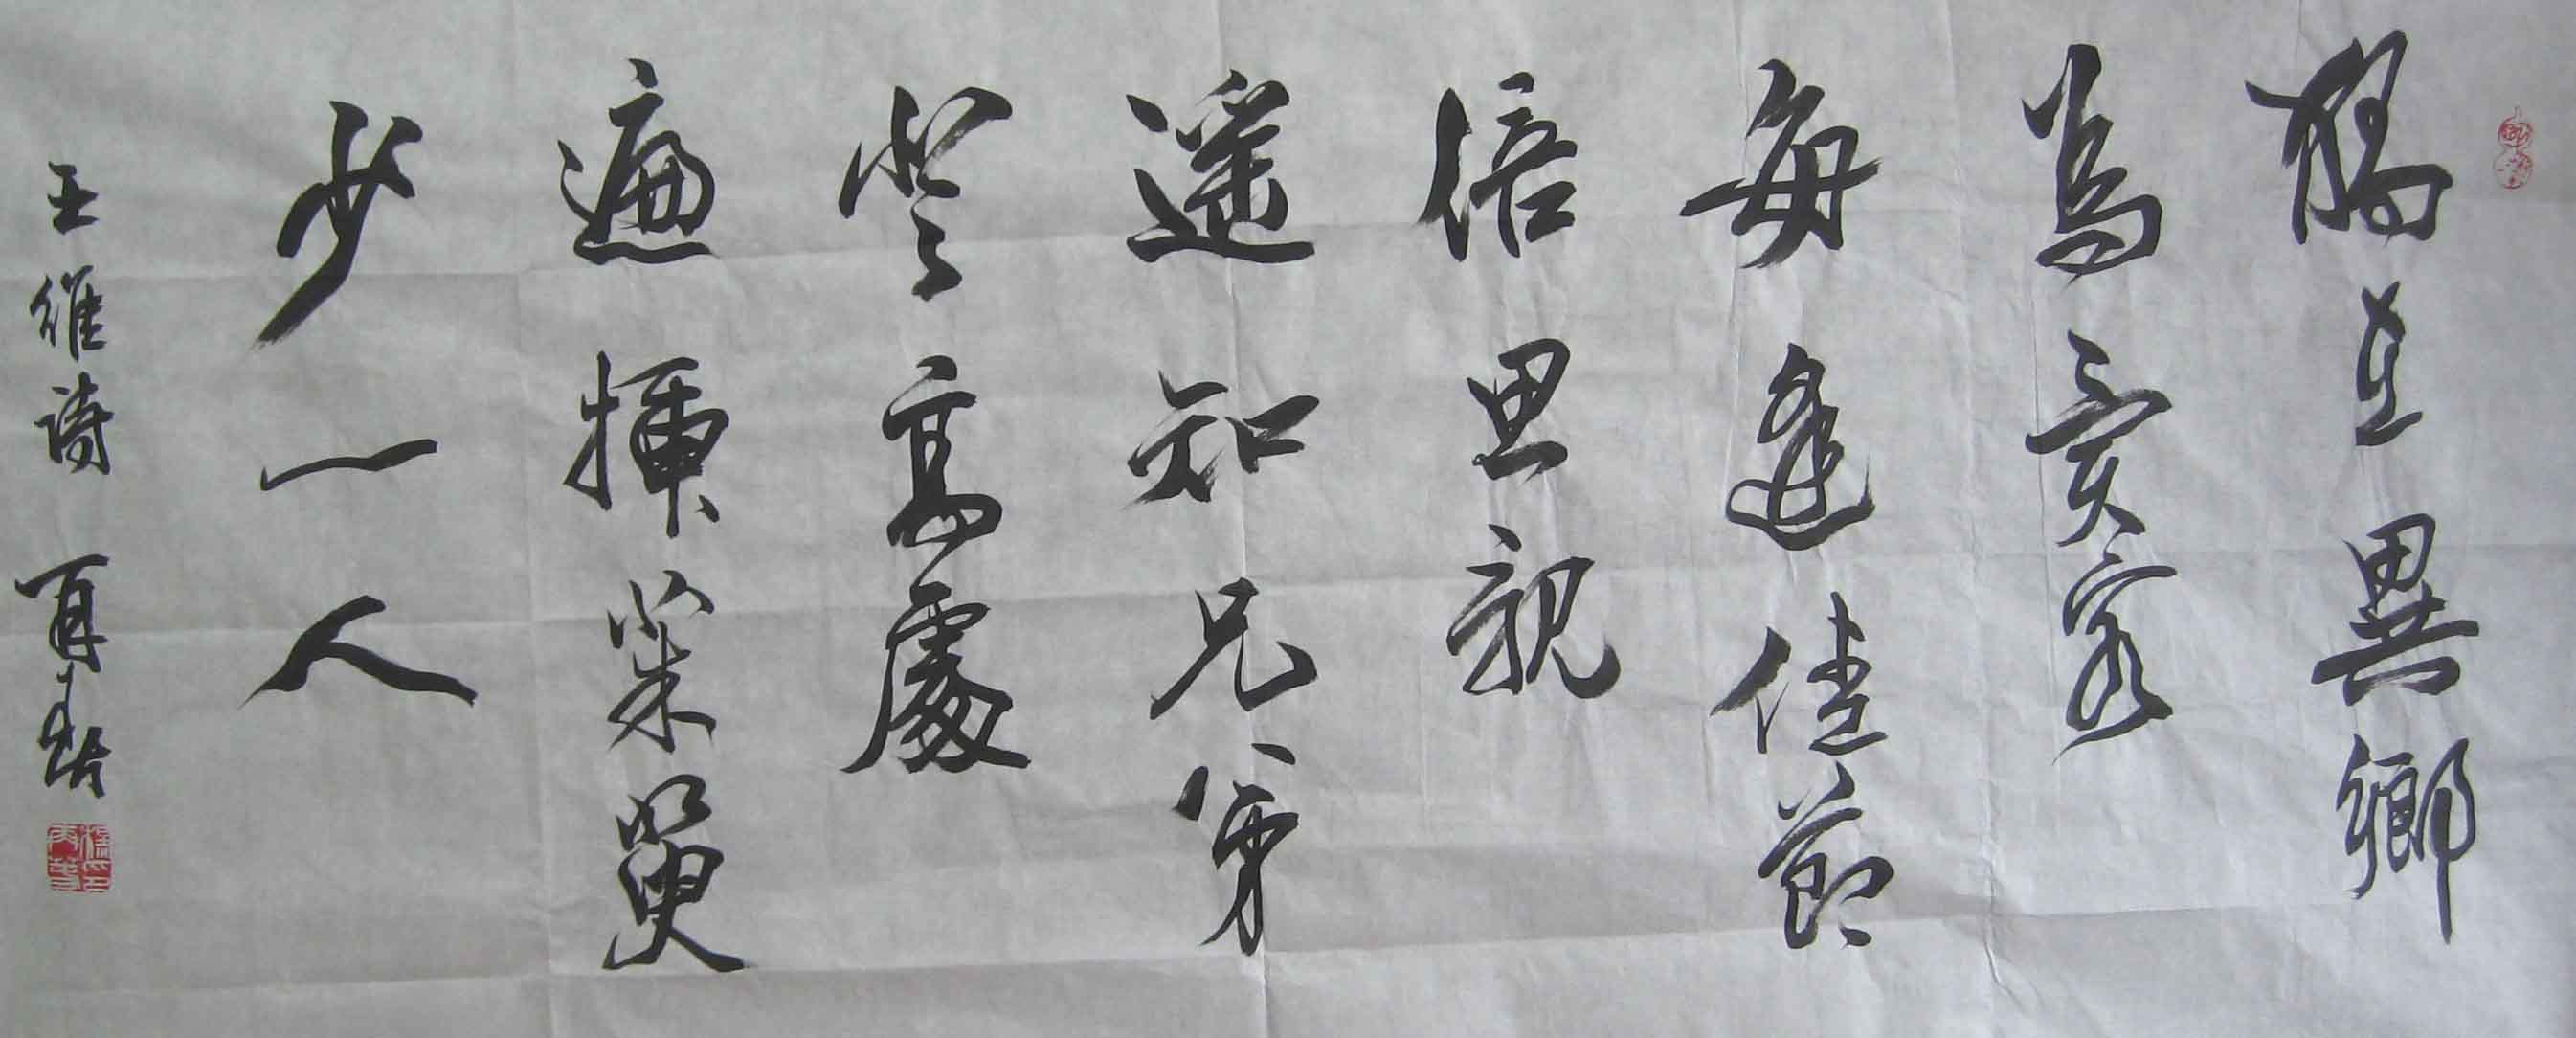 獨在異鄉
為異客
每逢佳節
倍思親
遥知兄弟
登高處
遍插茱萸
少一人
王維詩